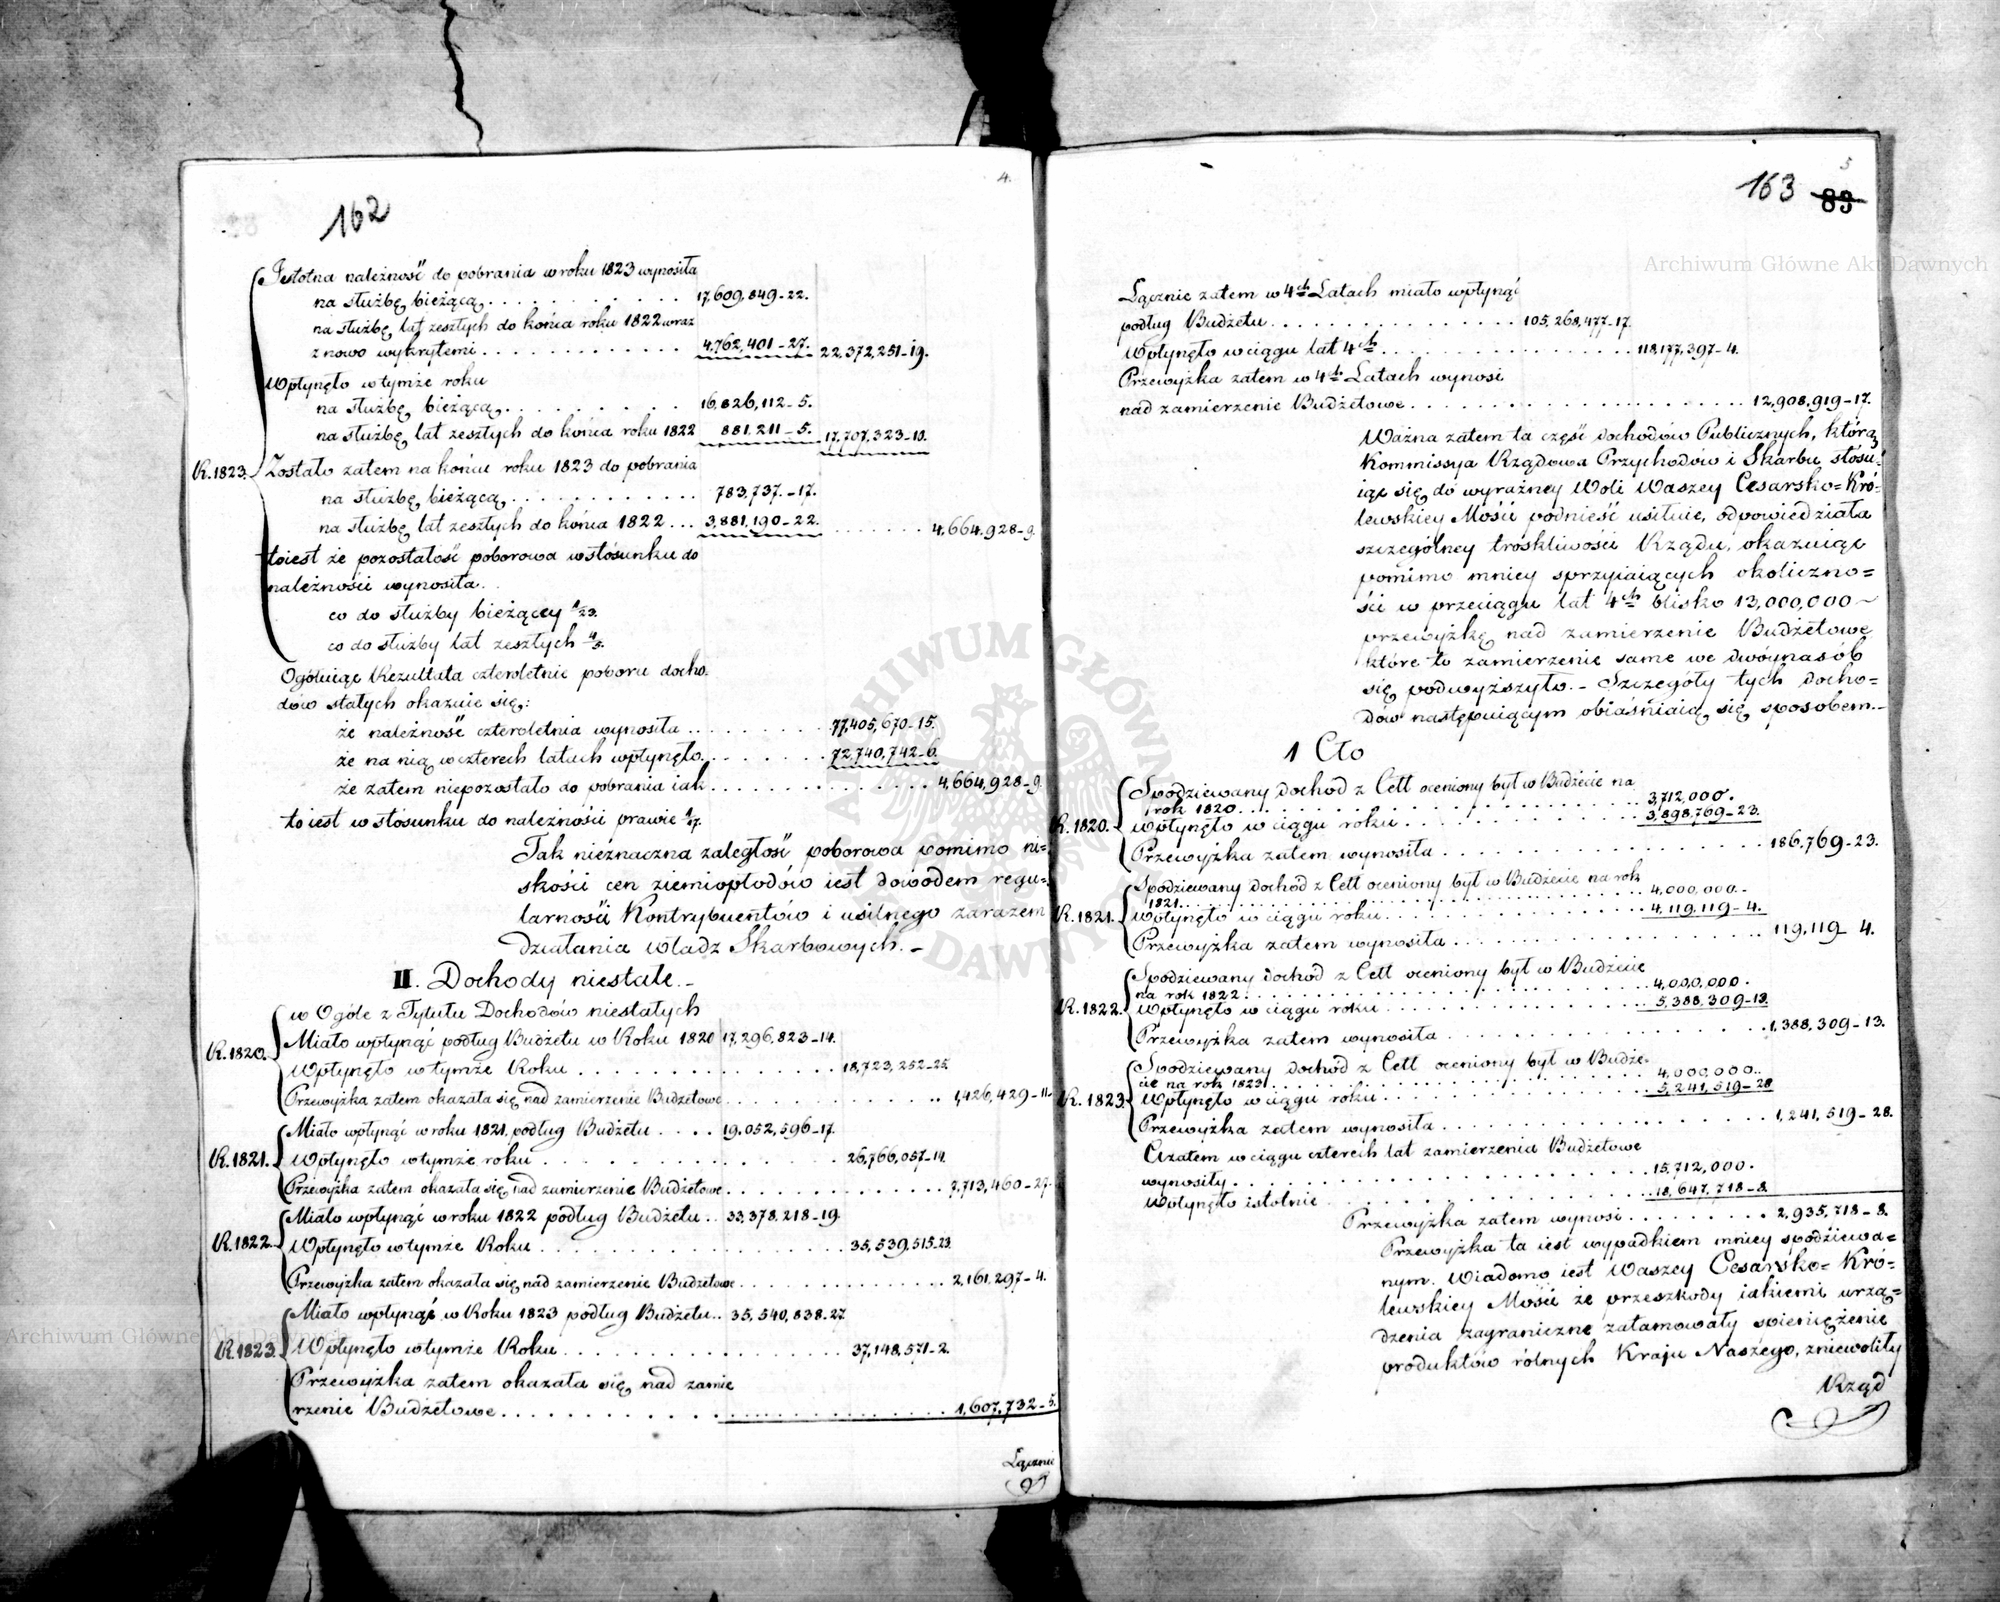 4.
162
Istotna należność do pobrania w roku 1823 wynosiła
na służbę bieżącą . . . . . . . . . . . 17,609,849-22.
na służbę lat zeszłych do końca roku 1822 wraz
z nowo wykrytemi . . . . . . . . . . . 4,762,401-27. 22,372,251-19.
Wpłynęło w tymże roku
na służbę bieżącą . . . . . . . . . 16,826,112-5.
na służbę lat zeszłych do końca roku 1822 881,211-5. 17,707,323-10.
R. 1823. Zostało zatem na końcu roku 1823 do pobrania
na służbę bieżącą . . . . . . . . . . 783,737.-17.
na służbę lat zeszłych do końca 1822 . . . 3,881,190-22. . . . . . . 4,664,928-9.
to iest że pozostałość poborowa w stósunku do
należności wynosiła . .
co do służby bieżącey 1/23.
co do służby lat zeszłych 4/5.
Ogólniąc Rezultata czteroletnie poboru docho-
dów stałych okazuie się:
że należność czteroletnia wynosiła . . . . . . . . . 77,405,670-15.
że na nią w czterech latach wpłynęło . . . . . . . . 72,740,742-6.
że zatem niepozostało do pobrania iak . . . . . . . . . . . . . . . 4,664,928-9.
to iest w stósunku do należności prawie 1/17.
Tak nieznaczna zaległość poborowa pomimo ni=
skości cen ziemiopłodów iest dowodem regu-
larności Kontrybuentów i usilnego zarazem
działania władz Skarbowych. –
II. Dochody niestałe. –
w Ogóle z Tytułu Dochodów niestałych
Miało wpłynąć podług Budżetu w Roku 1820 17,296,823-14.
R. 1820. Wpłynęło w tymże Roku . . . . . . . . . . . . . . 18,723,252-25.
Przewyżka zatem okazała się nad zamierzenie Budżetowe . . . . . . . . . . . . . . 1,426,429-11.
Miało wpłynąć w roku 1821. podług Budżetu . . . . 19.052,596-17.
R. 1821. Wpłynęło w tymże roku . . . . . . . . . . . . . . . . 26,766,057-14.
Przewyżka zatem okazała się nad zamierzenie Budżetowe . . . . . . . . . . . . . . 7,713,460-27.
Miało wpłynąć w roku 1822 podług Budżetu . . 33,378,218-19.
R. 1822. Wpłynęło w tymże Roku . . . . . . . . . . . . . . . . 35,539,515-23.
Przewyżka zatem okazała się nad zamierzenie Budżetowe . . . . . . . . . . . . . . 2,161,297-4.
Miało wpłynąć w Roku 1823 podług Budżetu . . 35,540,838.27
R. 1823. Wpłynęło w tymże Roku . . . . . . . . . . . . . . 37,148,571-2.
Przewyżka zatem okazała się nad zamie
rzenie Budżetowe . . . . . . . . . . . . . . . . . . . . 1,607,732-5.
Łącznie
5
163 83
Łącznie zatem w 4ch Latach miało wpłynąć
podług Budżetu . . . . . . . . . . . . . . . . 105,268,477-17.
Wpłynęło w ciągu lat 4ch . . . . . . . . . . . . . . . . . . . 118,177,397-4.
Przewyżka zatem w 4ch Latach wynosi
nad zamierzenie Budżetowe . . . . . . . . . . . . . . . . . . . . . . 12,908,919-17.
Ważna zatem ta część dochodów Publicznych, którą
Kommissya Rządowa Przychodów i Skarbu stósu-
iąc się do wyraźney Woli Waszey Cesarsko=Kró-
lewskiey Mości podnieść usiłuie, odpowiedziała
szczególney troskliwości Rządu, okazuiąc
pomimo mniey sprzyiaiących okoliczno=
ści w przeciągu lat 4ch blisko 13,000,000 ~
przewyżkę nad zamierzenie Budżetowe
które to zamierzenie same we dwóynasób
się podwyższyło. – Szczegóły tych docho=
dów następuiącym obiaśniaią się sposobem. –
1 Cło
Spodziewany dochód z Ceł oceniony był w Budżecie na
rok 1820 . . . . . . . . . . . . . . . . . . . . . . . . 3,712,000.
R. 1820. Wpłynęło w ciągu roku . . . . . . . . . . . . . . . . 3,898,769-23.
Przewyżka zatem wynosiła . . . . . . . . . . . . . . . . . . . . . . 186,769-23.
Spodziewany dochód z Ceł oceniony był w Budżecie na rok
1821 . . . . . . . . . . . . . . . . . . . . . . . . . . 4,000,000.-
R. 1821. Wpłynęło w ciągu roku . . . . . . . . . . . . . . . . . . 4,119,119-4.
Przewyżka zatem wynosiła . . . . . . . . . . . . . . . . . . . . . . 119,119-4.
Spodziewany dochód z Ceł oceniony był w Budżecie
na rok 1822 . . . . . . . . . . . . . . . . . . . . . . . 4,000,000.
R. 1822. Wpłynęło w ciągu roku . . . . . . . . . . . . . . . . . . 5,388,309-13.
Przewyżka zatem wynosiła . . . . . . . . . . . . . . . . . . . . . . 1,388,309-13.
Spodziewany dochód z Ceł oceniony był w Budże-
cie na rok 1823 . . . . . . . . . . . . . . . . . . . . . 4,000,000. .
R. 1823. Wpłynęło w ciągu roku . . . . . . . . . . . . . . . . . . 5,241,519-28
Przewyżka zatem wynosiła . . . . . . . . . . . . . . . . . . . . . . 1,241,519-28.
A zatem w ciągu czterech lat zamierzenia Budżetowe
wynosiły . . . . . . . . . . . . . . . . . . . . . . . . . 15,712,000.
Wpłynęło istotnie . . . . . . . . . . . . . . . . . . . . . 18,647,718-8
Przewyżka zatem wynosi . . . . . . . . . . 2,935,718-8.
Przewyżka ta iest wypadkiem mniey spodziewa=
nym. Wiadomo iest Waszey Cesarsko=Kró-
lewskiey Mości że przeszkody iakiemi urzą=
dzenia zagraniczne zatamowały spieniężenie
produktów rólnych Kraju Naszego, zniewoliły
Rząd
Archiwum Główne Akt Dawnych
Archiwum Główne Akt Dawnych
ARCHIWUM GŁÓWNE AKT DAWNYCH